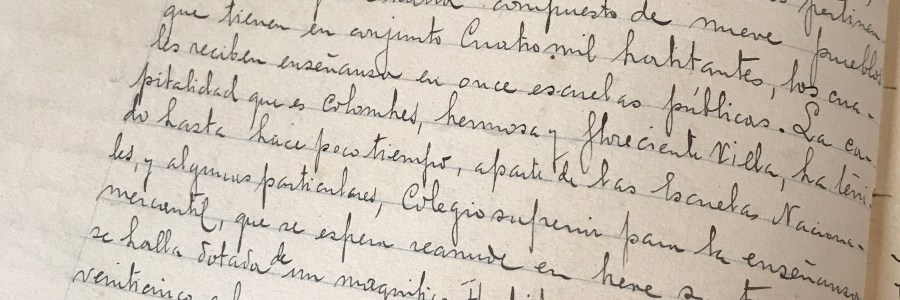 compuesto de nueve pueblos
que tienen en conjunto Cuatro mil habitantes, los cua-
les reciben enseñanza en once escuelas públicas. La ca-
pitalidad que es Colombres, hermosa y floreciente Villa, ha teni-
do hasta hace poco tiempo, aparte de las Escuelas Naciona-
les, y algunas particulares, Colegio superior para la enseñanza
mercantil, que se espera reanude en breve
se halla dotada de un magnífico
veinticinco